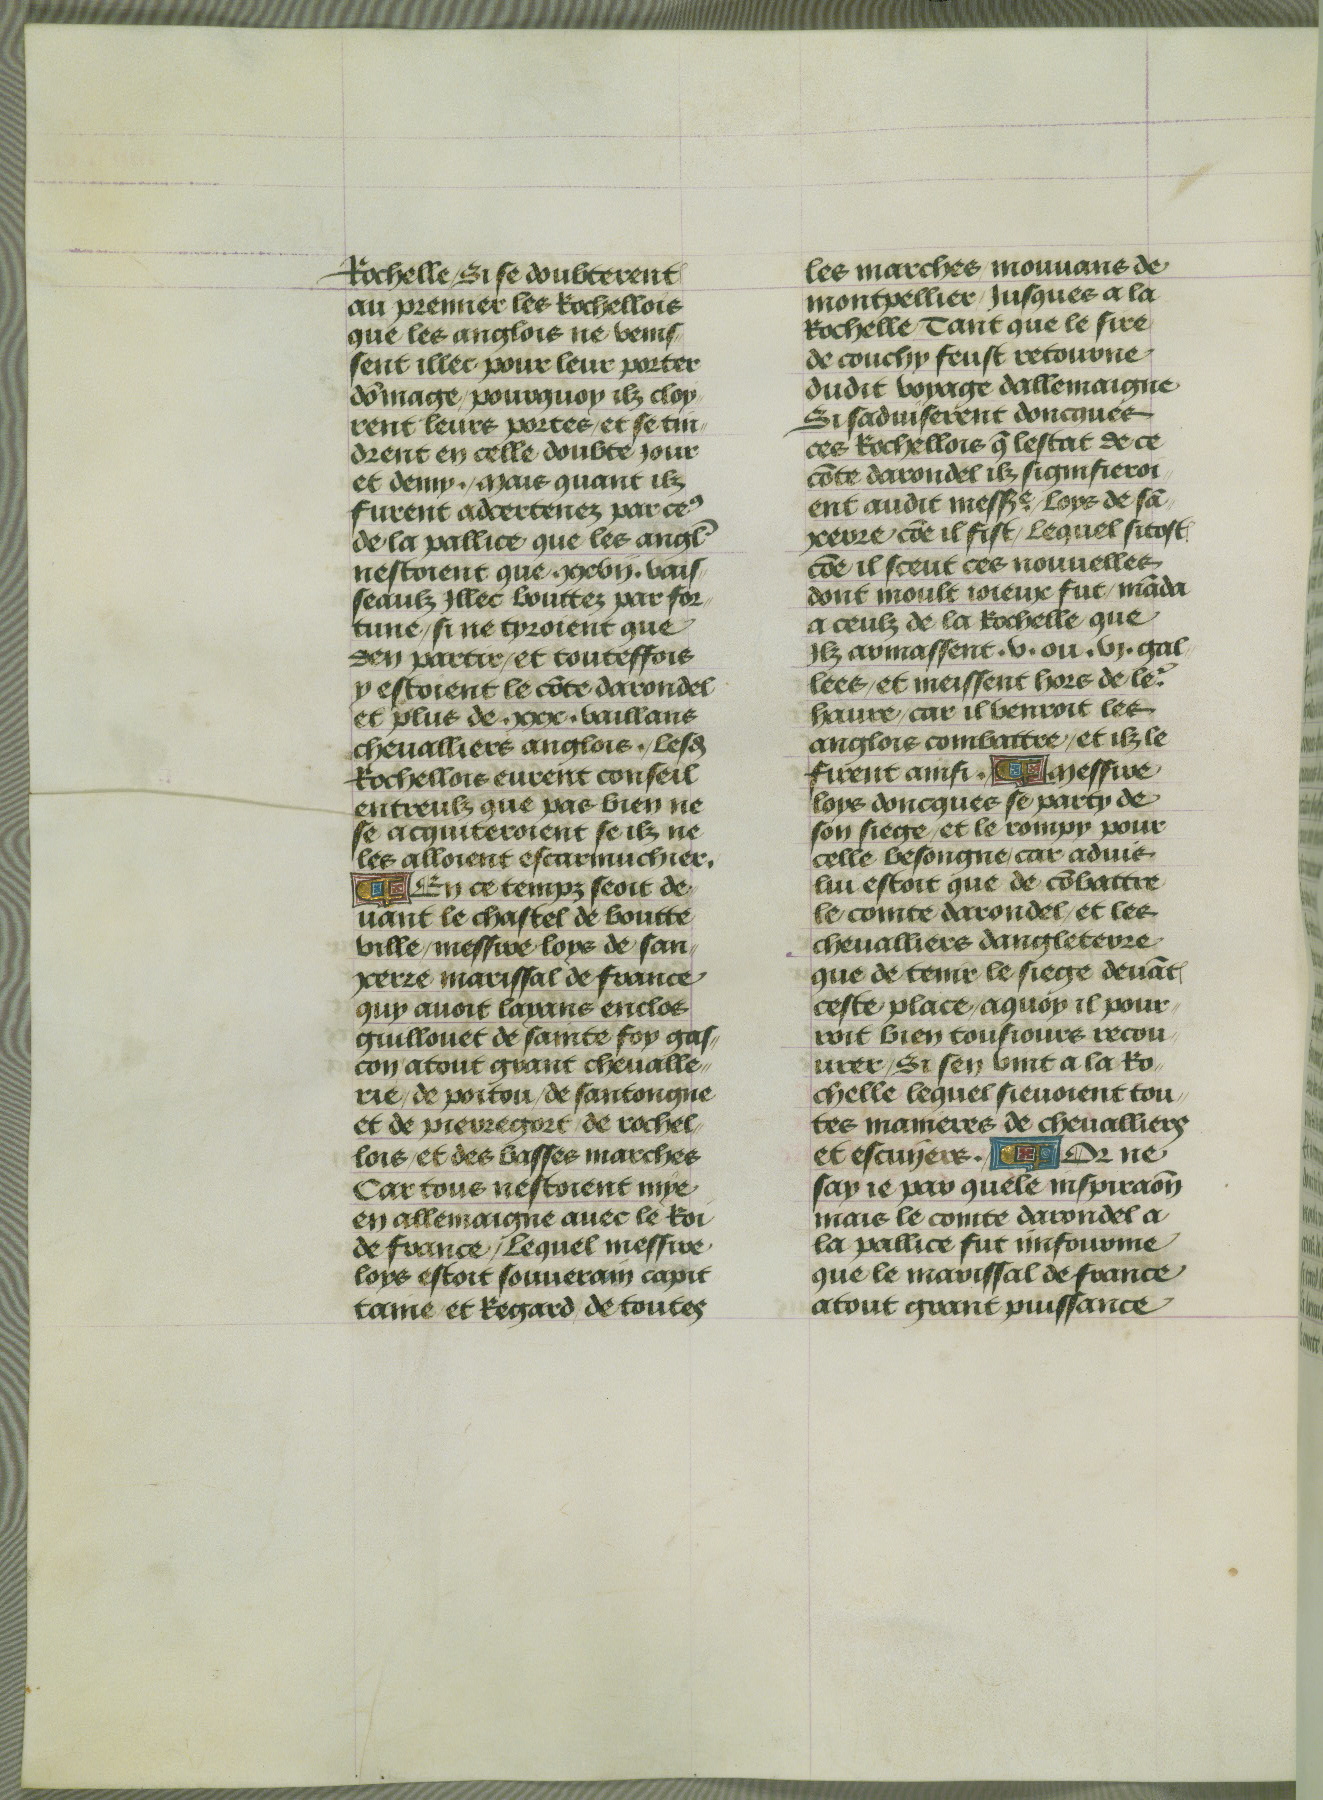 Rochelle / Si se doubterent
au premier les Rochellois
que les anglois ne venis/
sent illec pour leur porter
dōmage / pourquoy ilz cloy/
rent leurs portes / et se tin/
drent en celle doubte Jour
et demy . / Mais quant ilz
furent adcertenez par ceꝰ
de la pallice que les anglˀ
nestoient que .xxvij. vais/
seaulz Jllec bouttez par for/
tune / si ne tyroient que
den partir / et touteffois
y estoient le cōte darondel
et plus de .xxx. vaillans
chevalliers anglois . / Lesd
Rochellois eurent conseil
entreulz que pas bien ne
se acquiteroient se ilz ne
les alloient escarmuchier .
En ce tempz seoit de
uant le chastel de boutte
ville / messire loys de san/
xerre marissal de france
quy avoit layans enclos
guillouet de sainte foy gas/
con atout grant chevalle/
rie / de poitou / de santongue
et de pierregort / de rochel/
lois / et des basses marches
Car tous nestoient mye
en allemaigne avec le Roi
de france / Lequel messire
loys estoit souverain capit
taine et Regard de toutes
les marches mouvans de
montpellier / Jusques a la
Rochelle Tant que le sire
de couchy feust retourne
dudit voyage dallemaigne
Si sadviserent doncques
ces Rochellois q̄ lestat de ce
cōte darondel ilz signifieroi/
ent audit messꝛᵉ / Loys de sā/
xerre cōe il fist / Lequel sitost
cōe il sceut ces nouvelles
dont moult ioieux fut / māda
a ceulz de la Rochelle que
Jlz armassent .v. ou .vj. gal/
lees / et meissent hors de leˀ
havre / car il venroit les
anglois combattre / et ilz le
firent ainsi . Messire
loys doncques se party de
son siege / et le rompy pour
celle besongne / car advis
lui estoit que de cōbattre
le comte darondel / et les
chevalliers dangleterre
que de tenir le siege devāt
ceste place / aquoy il pour/
roit bien tousiours recou/
urer / Si sen vint a la Ro/
chelle lequel sievoient tou/
tes manieres de chevalliers
et escuyers . / Or ne
say ie par quele inspiraōn
mais le comte darondel a
la pallice fut imfourme
que le marissal de france
atout grant puissance